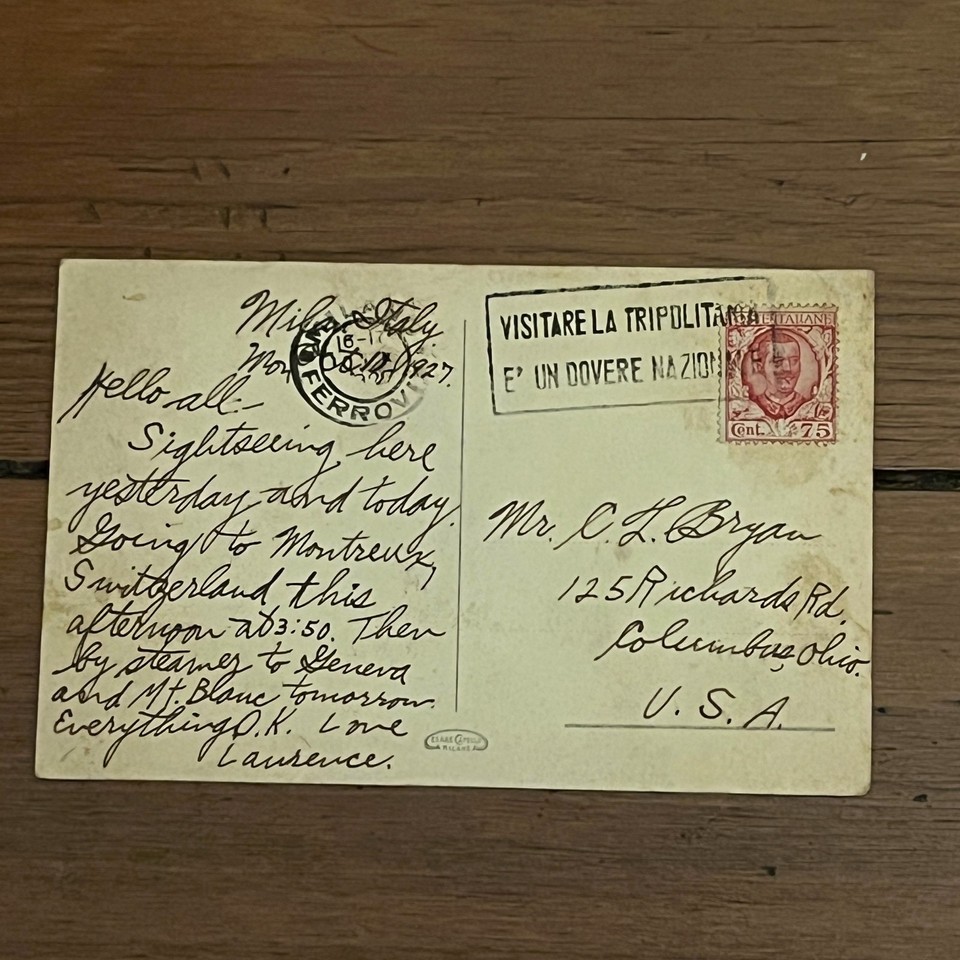 Milan, Italy.
Mon Oct. 17, 1927.
Hello all-
Sightseeing here
yesterday and today.
Going to Montreux,
Switzerland this
afternoon at 3:50. Then
by steamer to Geneva
and Mt. Blanc tomorrow.
Everything O.K. Love
Laurence.
FERROVI
16-17
VISITARE LA TRIPOLITANIA
E' UN DOVERE NAZIONALE
POSTE ITALIANE
Cent. 75
Mr. C. L. Bryan
125 Richards Rd.
Columbus, Ohio.
U. S. A.
CESARE CAPELLO
MILANO